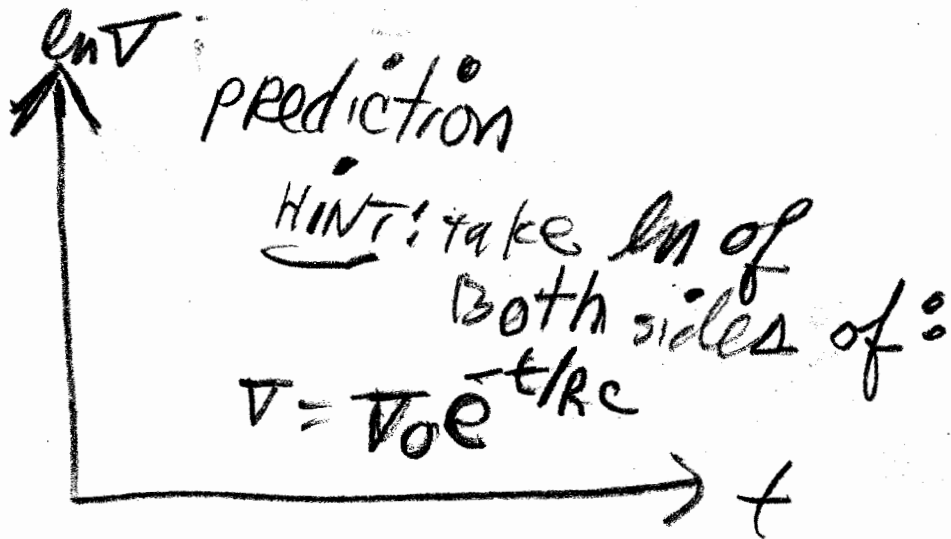 ln V
prediction
HINT: take ln of
Both sides of:
V = V₀e^-t/RC
t